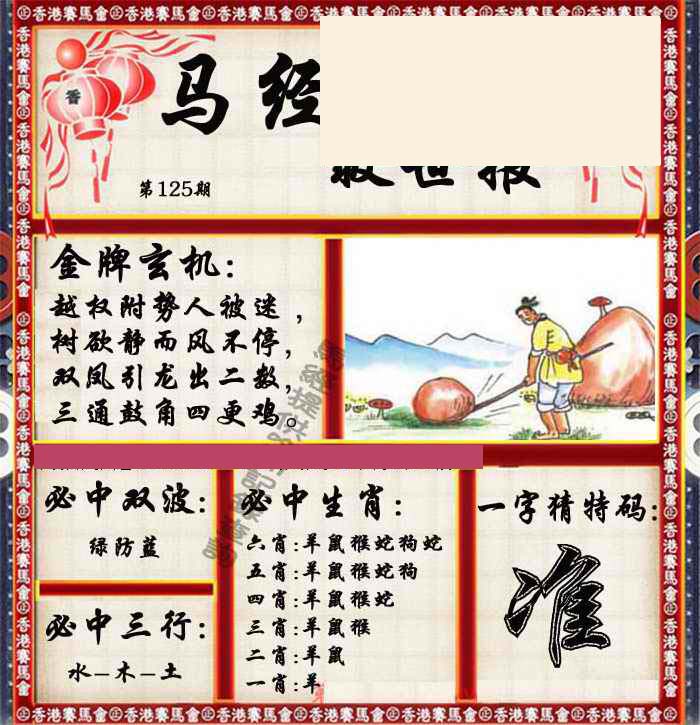 香港賽馬會
香
马经
救世报
第125期
金牌玄机:
越权附势人被迷,
树欲静而风不停,
双凤引龙出二数,
三通鼓角四更鸡。
必中双波:
绿防蓝
必中三行:
水-木-土
必中生肖:
六肖:羊鼠猴蛇狗蛇
五肖:羊鼠猴蛇狗
四肖:羊鼠猴蛇
三肖:羊鼠猴
二肖:羊鼠
一肖:羊
一字猜特码:
准